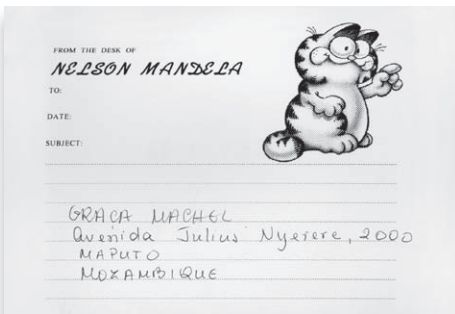 FROM THE DESK OF
NELSON MANDELA
TO:
DATE:
SUBJECT:
GRACA MACHEL
Avenida Julius Nyerere, 2000
MAPUTO
MOZAMBIQUE